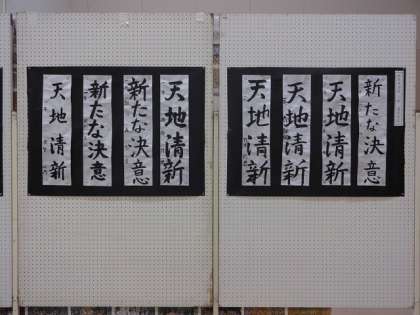 新たな決意
天地清新
天地清新
天地清新
天地清新
新たな決意
新たな決意
天地清新